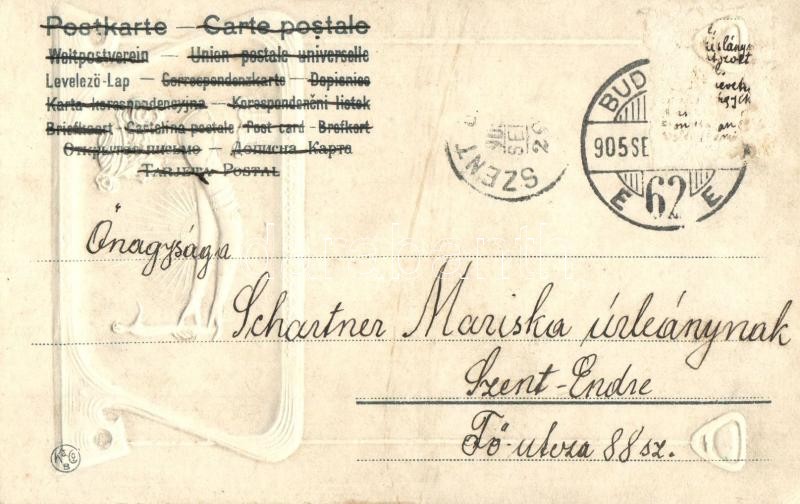 Postkarte — Carte postale
Weltpostverein — Union postale universelle
Levelező-Lap — Correspondenzkarte — Dopisnice
Karta korespondencyjna — Korespondenční lístek
Briefkaart — Cartolina postale — Post card — Brefkort
Открытое письмо — Дописна Карта
TARJETA POSTAL
BUD
905 SE
E 62 E
SZENT
Őnagysága
Schartner Mariska úrleánynak
Szent-Endre
Fő-utcza 88 sz.